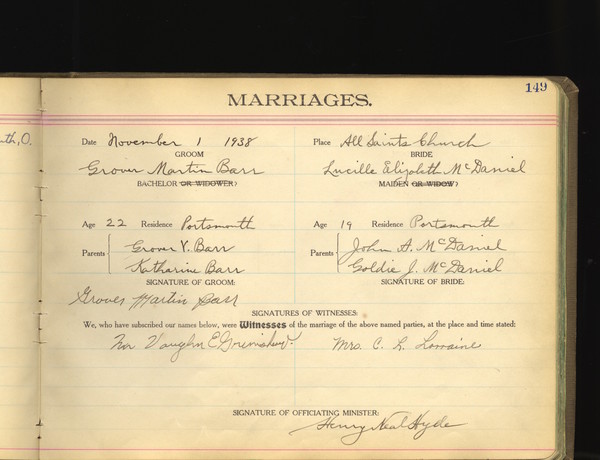 149
MARRIAGES.
uth, O.
Date November 1 1938 Place All Saints Church
GROOM BRIDE
Grover Martin Barr Lucille Elizabeth McDaniel
BACHELOR OR WIDOWER? MAIDEN OR WIDOW?
Age 22 Residence Portsmouth Age 19 Residence Portsmouth
Parents Grover V. Barr John A. McDaniel
Katharine Barr Goldie J. McDaniel
SIGNATURE OF GROOM: SIGNATURE OF BRIDE:
Grover Martin Barr
SIGNATURES OF WITNESSES:
We, who have subscribed our names below, were Witnesses of the marriage of the above named parties, at the place and time stated:
Vaughn E Mrs. C. L. Lorraine
SIGNATURE OF OFFICIATING MINISTER:
Henry Neal Hyde